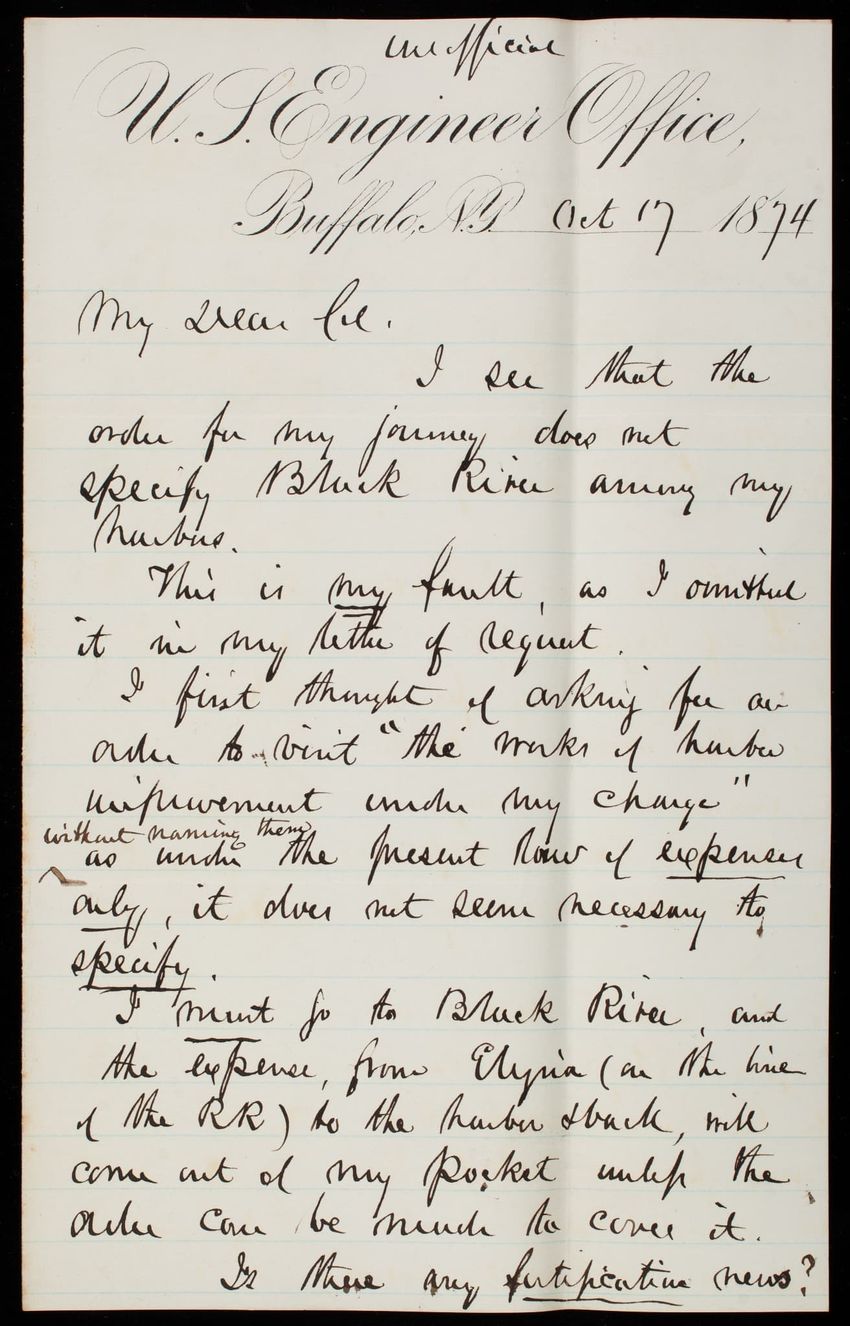 unofficial
U. S. Engineer Office,
Buffalo, N.Y. Oct 17 1874
My Dear Col.
I see that the
order for my journey does not
specify Black River among my
harbors.
This is my fault, as I omitted
it in my letter of request.
I first thought of asking for an
order to visit "the works of harbor
improvement under my charge"
without naming them
as under the present law of expenses
only, it does not seem necessary to
specify.
I must go to Black River, and
the expense, from Elyria (on the line
of the RR) to the harbor & back, will
come out of my pocket unless the
order can be made to cover it.
Is there any fortification news?